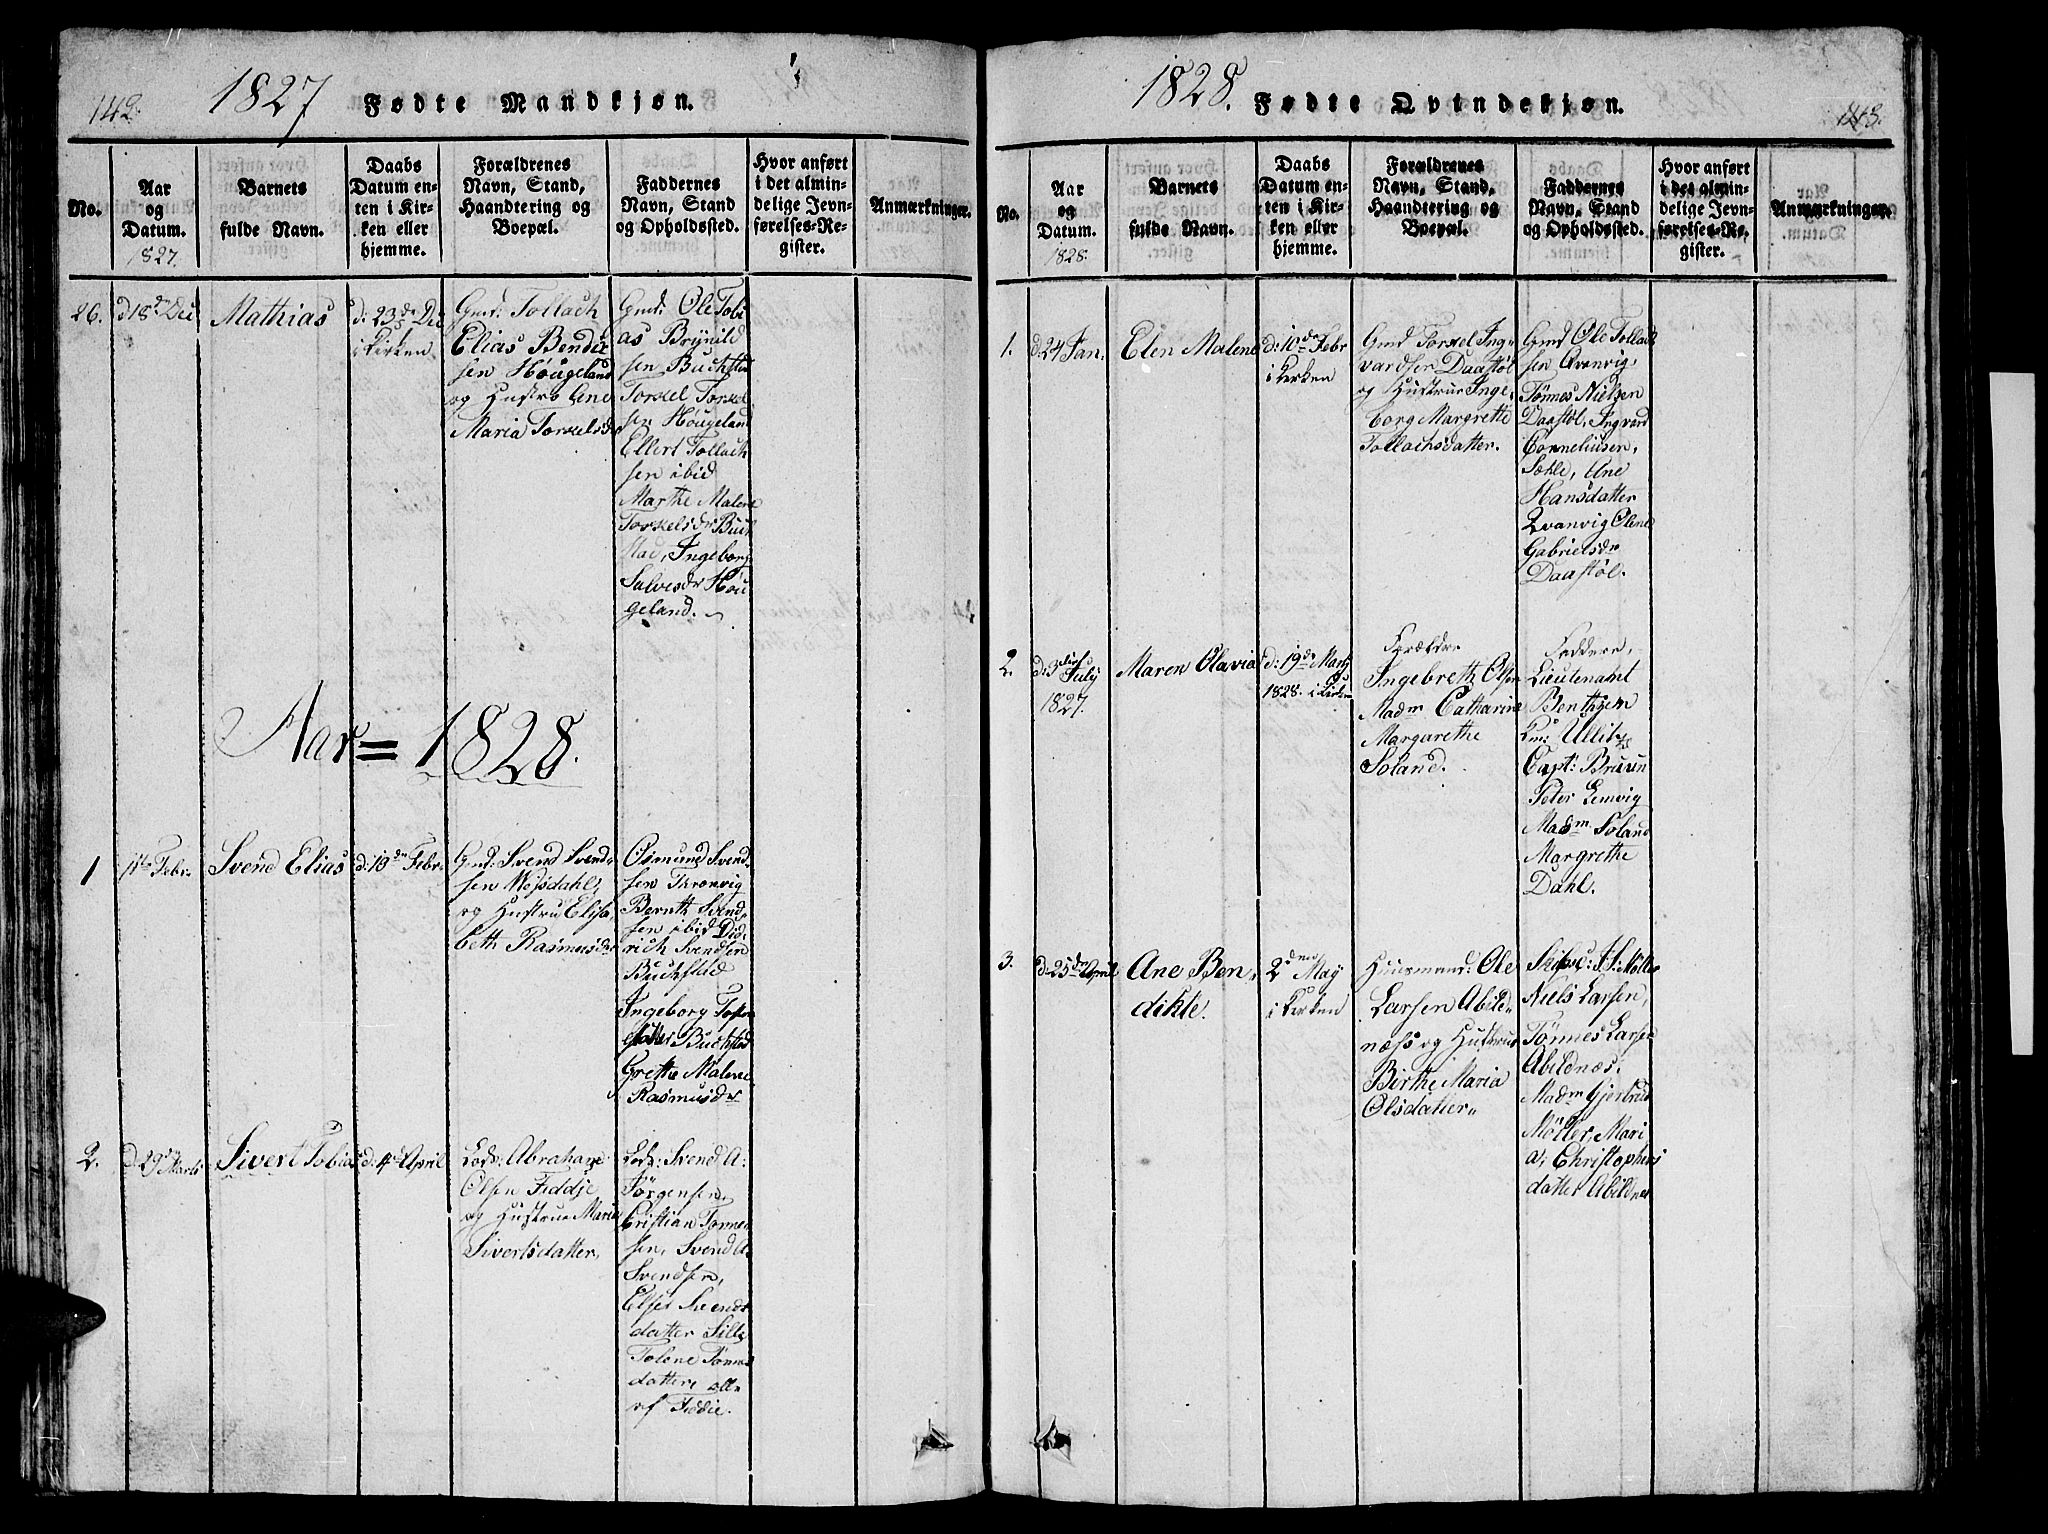 142.
1827
Fødte Mandkjøn.
No.
Aar
og
Datum.
1827.
Barnets
fulde Navn.
Daabs
Datum en-
ten i Kir-
ken eller
hjemme.
Forældrenes
Navn, Stand,
Haandtering og
Boepæl.
Faddernes
Navn, Stand
og Opholdssted.
Hvor anført
i det almin-
delige Jevn-
førelses-Re-
gister.
Anmærkninger.
26.
d 18de Dec
Mathias
d: 23de Dec
i Kirken
Gmd: Tollach
Elias Bendic
sen Høugeland
og Hustro Ane
Maria Torkelsdr
Gmd: Ole Tobi
as Brynild
sen Buchsted
Torkel Torkel
sen Høugeland
Ellert Tollach
sen ibid
Marthe Malene
Torkelsdr Buch
stad, Ingeborg
Salvesdr Høu
geland.
Aar = 1828.
1
Febr.
Svend Elias
d: 19de Febr.
Gmd: Svend Svend-
sen
og Hustru Elisa
beth Rasmusdr
Osmund Svend-
sen Tronvig
Bernth Svend-
sen ibid Did-
rich Svendsen
Buchsted
Ingeborg
datter Buchsted
Grethe Malene
Rasmusdr
2.
d 29de Marti
Sivert Tobias
d. 4de April
Lods: Abraham
Olsen Feddje
og Hustrue Marie
Sivertsdatter,
Lods: Svend A-
Jörgensen,
Cristian Tønne-
sen, Svend A-
Svendsen,
Elset Svends-
datter Sille
Tolene Tønnes
dattere alle
af Feddie.
1828.
Fødte Qvindekjøn.
143.
No.
Aar
og
Datum.
1828.
Barnets
fulde Navn.
Daabs
Datum en-
ten i Kir-
ken eller
hjemme.
Forældrenes
Navn, Stand,
Haandtering og
Boepæl.
Faddernes
Navn, Stand
og Opholdssted.
Hvor anført
i det almin-
delige Jevn-
førelses-Re-
gister.
Anmærkninger.
1.
d. 24 Jan.
Elen Malene
d: 10de Febr
i Kirken
Gmd Torkel Ing-
vardsen Daastøl
og Hustrue Inge-
borg Margrethe
Tollachsdatter.
Gmd Ole Tollach
sen Qvanvig
Tønnes Nielsen
Daastøl, Ingvard
Corneliusen,
Ane
Hansdatter
Qvanvig Olene
Gabrielsdr
Daastøl.
2.
d. 3die July
1827.
Maren Olavia
d: 19de Marty
1828. i Kirken
Forældre
Ingebreth Olsen
Madm Catharine
Margarethe
Soland.
Faddere,
Lieutenamt
Benthzen
Ullitz
Capt: Bruun
Peter Lemvig
Madm Soland
Margrethe
Dahl.
3.
d. 25de April
Ane Ben-
dikte.
2den May
i Kirken
Huusmand: Ole
Larsen Abild-
næss og Hustrue
Birthe Maria
Olsdatter
Møller
Niels Larsen,
Tønnes Larsen
Abildnæs.
Madm Gjertrud
Møller, Mari
a, Christophers
datter Abildnæs